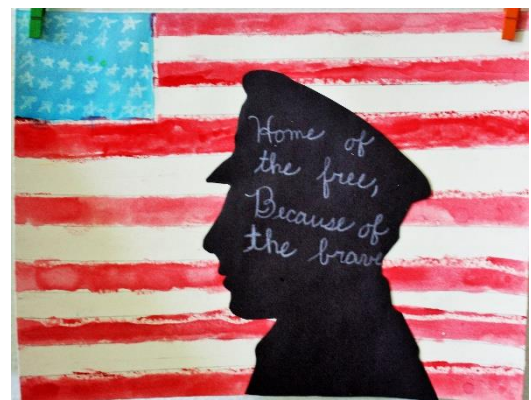 Home of
the free,
Because of
the brave